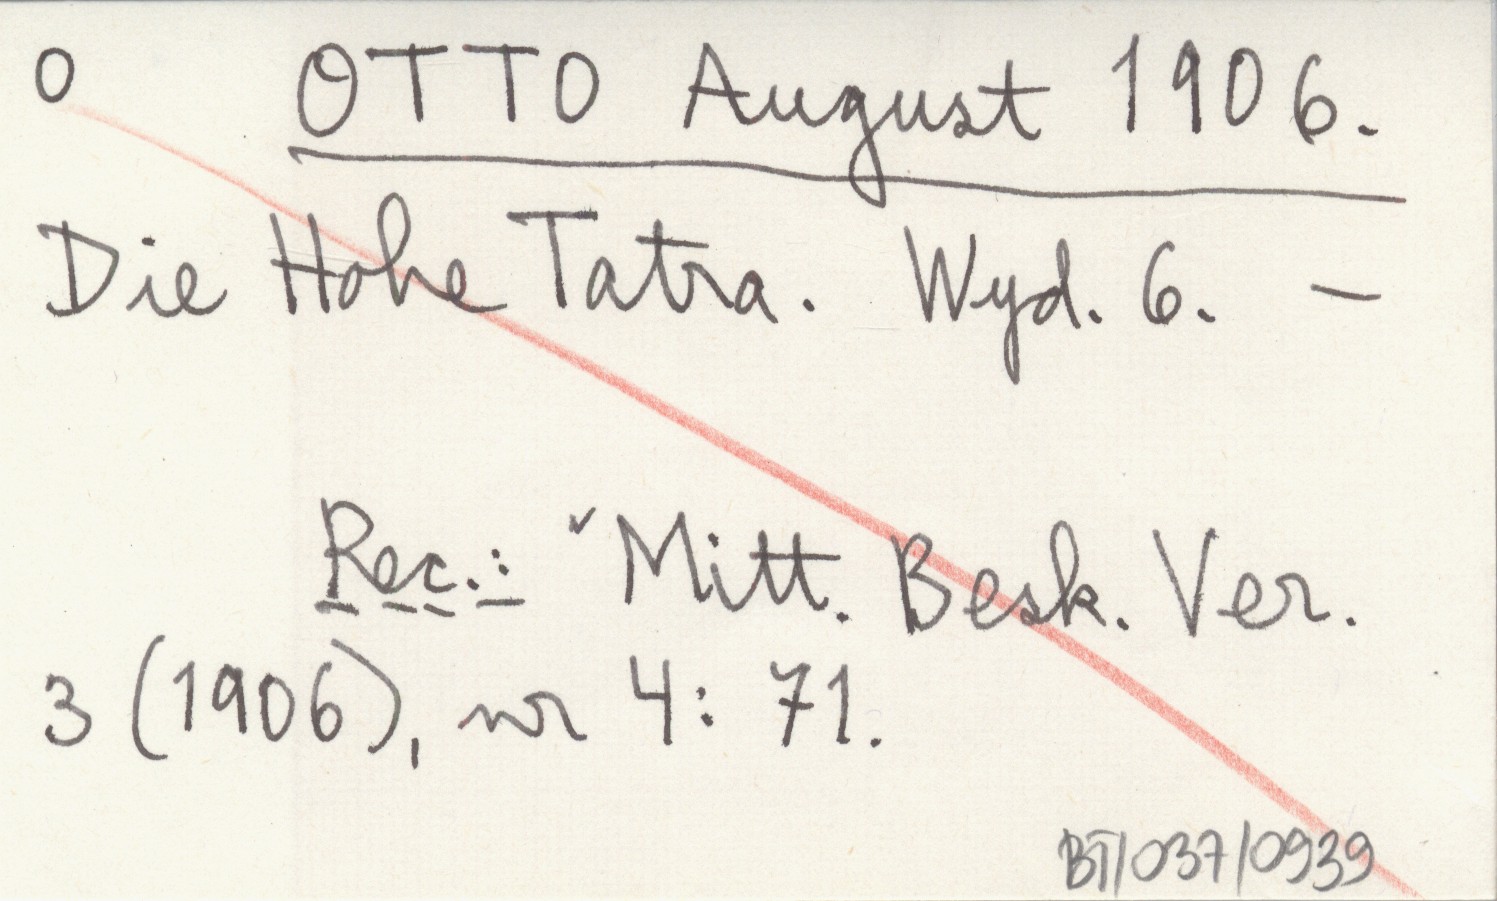 O OTTO August 1906.
Die Hohe Tatra. Wyd. 6. —
Rec.: Mitt. Besk. Ver.
3 (1906), nr 4: 71.
BT/037/0939